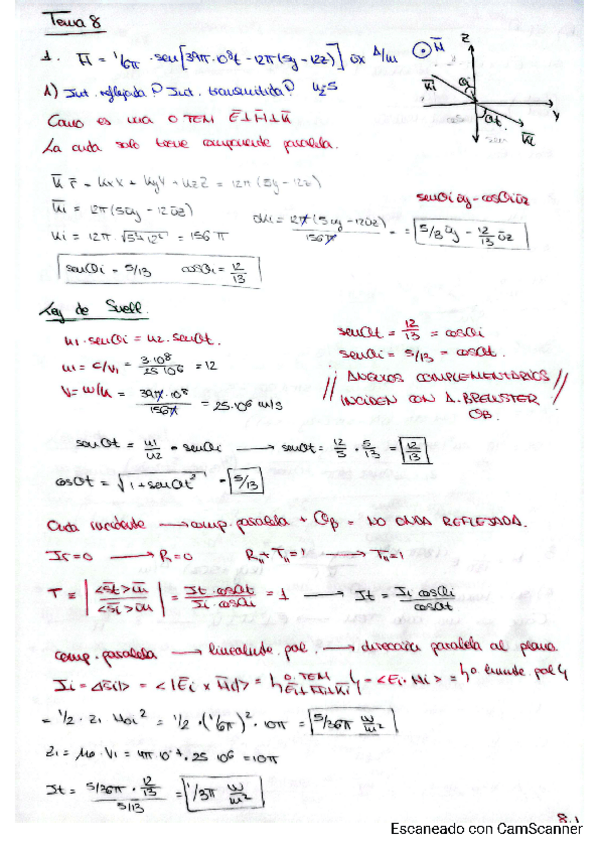 Tema 8
1. H̄ = 1/6π · sen[39π·10⁸t - 12π(5y - 12z)] ūx A/m
H̄ z
1) Int. reflejada? Int. transmitida? n₂=5
K̄i θi
y
θt
Como es una O TEM Ē⊥H̄⊥K̄
La onda solo tiene componente paralela.
K̄ r̄ = Kx X + Ky Y + Kz Z = 12π (5y - 12z)
K̄i = 12π (5ūy - 12ūz)
Ki = 12π · √(5²+12²) = 156 π
senθi ūy - cosθi ūz
12π(5ūy - 12ūz) / 156π = 5/13 ūy - 12/13 ūz
senθi = 5/13 cosθi = 12/13
Ley de Snell.
n₁·senθi = n₂·senθt.
n₁ = c/v₁ = 3·10⁸ / 25·10⁶ = 12
V = w/k = 39π·10⁸ / 156π = 25·10⁶ m/s
senθt = 12/13 = cosθi
senθi = 5/13 = cosθt.
// ÁNGULOS COMPLEMENTARIOS //
INCIDEN CON A. BREWSTER
θB.
senθt = n₁/n₂ · senθi → senθt = 12/5 · 5/13 = 12/13
cosθt = √(1+senθt²) = 5/13
Onda incidente → comp. paralela + θB = NO ONDA REFLEJADA.
Ir=0 → R=0 R∥+T∥=1 → T∥=1
T = |<S̄t>ūn / <S̄i>ūn| = It·cosθt / Ii·cosθi = 1 → It = Ii cosθi / cosθt
comp. paralela → linealmte pol. → dirección paralela al plano.
Ii = <|Si|> = <|Ēi x H̄i|> = {O. TEM Ēi⊥H̄i⊥K̄i} = <Ei·Hi> = {O. linmte pol}
= 1/2 · Z₁ Hoi² = 1/2 · (1/6π)² · 10π = 5/36π W/m²
Z₁ = μ₀·V₁ = 4π·10⁻⁷·25·10⁶ = 10π
It = 5/36π · 12/13 / 5/13 = 1/3π W/m²
8.1
Escaneado con CamScanner